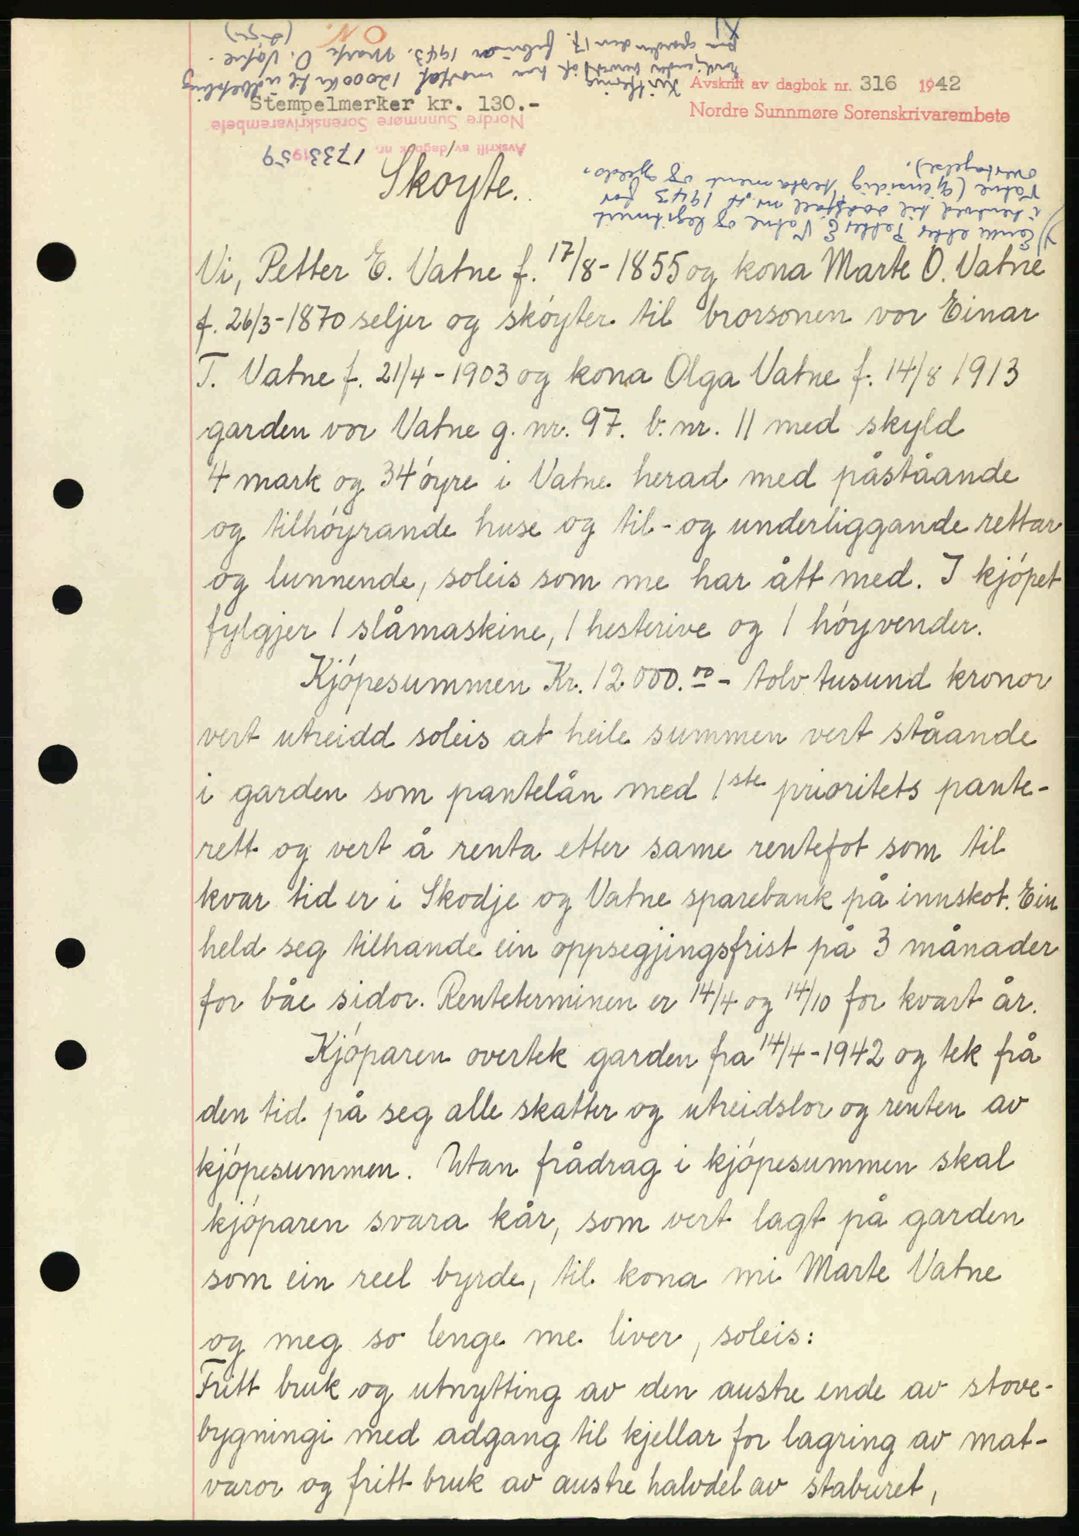 Avskrift av dagbok nr. 316 1942
Nordre Sunnmøre Sorenskrivarembete
Stempelmerker kr. 130.-
Nordre Sunnmøre Sorenskrivarembete
Avskrift av dagbok nr. 1733 1959
Skøyte.
Vi, Petter E. Vatne f. 17/8-1855 og kona Marte O. Vatne
f. 26/3-1870 seljer og skøyter til brorsonen vor Einar
T. Vatne f. 21/4-1903 og kona Olga Vatne f. 14/8 1913
garden vor Vatne g. nr. 97. b. nr. 11 med skyld
4 mark og 34 øyre i Vatne herad med påståande
og tilhøyrande huse og til- og underliggande rettar
og lunnende, soleis som me har ått med. I kjøpet
fylgjer 1 slåmaskine, 1 hesterive og 1 høyvender.
Kjøpesummen Kr. 12.000.00 - tolv tusund kronor
vert utreidd soleis at heile summen vert ståande
i garden som pantelån med 1ste prioritets pante-
rett og vert å renta etter same rentefot som til
kvar tid er i Skodje og Vatne sparebank på innskot. Ein
held seg tilhande ein oppsegjingsfrist på 3 månader
for båe sidor. Renteterminen er 14/4 og 14/10 for kvart år.
Kjøparen overtek garden fra 14/4-1942 og tek frå
den tid på seg alle skatter og utreidslor og renten av
kjøpesummen. Utan frådrag i kjøpesummen skal
kjøparen svara kår, som vert lagt på garden
som ein reel byrde, til kona mi Marte Vatne
og meg so lenge me liver, soleis:
Fritt bruk og utnytting av den austre ende av stove-
bygningi med adgang til kjellar for lagring av mat-
varor og fritt bruk av austre halvdel av staburet,